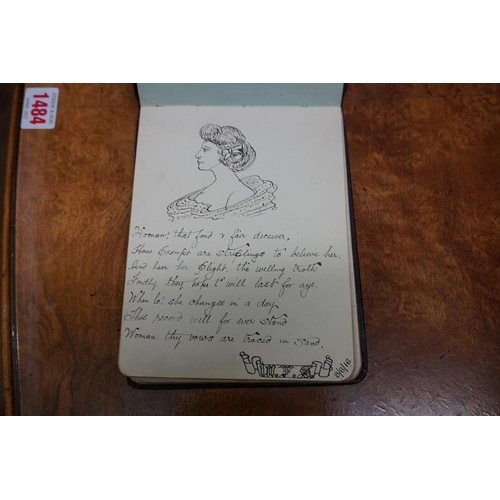 1484
Woman, that fond & fair deceiver,
How prompt are striplings to believe her.
And hear her plight, the willing troth
Fondly they hope t'will last for aye.
When lo! she changes in a day.
This record will for ever stand
Woman thy vows are traced in Sand.